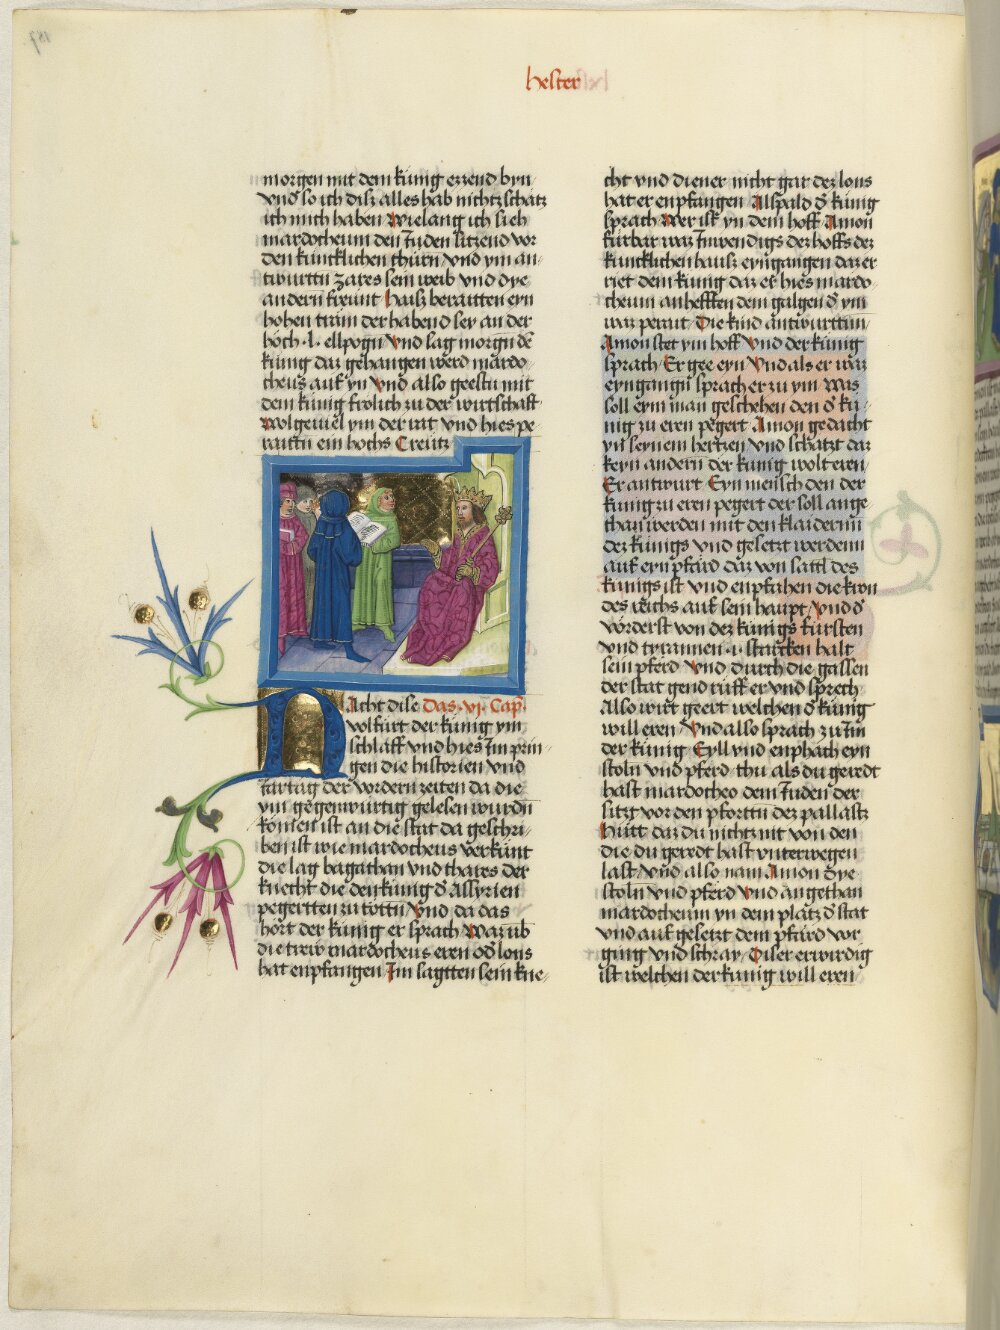 hester
morgen mit dem künig essend byn
vnd so ich disz alles hab nichtz schätz
ich mich haben Wielang ich sieh
mardocheum den Juden sitzend vor
den küncklichen thürn vnd ym an-
twurttn zares sein weib vnd dye
andern freunt hausz beraitten eyn
hohen trām der habend sey an der
höch .l. ellpogn vnd sag morgn dē
künig daz gehangen werd mardo-
cheus auf yn vnd also geestu mit
dem künig frölich zu der wirtschaft
Wolgeuiel ym der rat vnd hies pe
raittn ein hochs Creütz
Acht dise Das .vi. Cap.
volfürt der künig ym
schlaff vnd hies Im prin-
gen die historien vnd
Jartag der vordern zeiten da die
ym gegenwürtig gelesen wurdn
komen ist an die stat da geschri-
ben ist wie mardocheus verkünt
die lag bagathan vnd thares der
knecht die den künig d Assyrien
pegertten zu töttn Vnd da das
hört der künig er sprach Waz vb
die trew mardocheus eren od lons
hat enpfangen Im sagtten sein kne-
cht vnd diener nicht gar dez lons
hat er enpfangen Alspald d künig
sprach Wer ist yn dem hoff Amon
fürbar waz Inwendigs dez hoffs dez
küncklichen hausz eyngangen daz er
riet dem künig daz er hies mardo
cheum anhefften dem galgen d ym
waz perait Die kind antwurttnn
Amon stet ym hoff Vnd der künig
sprach Er gee eyn Vnd als er waz
eyngangn sprach er zu ym Was
soll eym man geschehen den d kü-
nig zu eren pegert Amon gedacht
yn seynem hertzen vnd schätzt daz
keyn andern der künig wolt eren
Er antwurt Eyn mensch den der
künig zu eren pegert der soll ange
than werden mit den klaidernn
dez künigs vnd gesetzt werdenn
auf eyn pfärd daz von sattl des
künigs ist vnd enpfahen die kron
des reichs auf sein haupt Vnd d
vörderst von dez künigs fürsten
vnd tyrannen .i. starcken halt
sein pferd Vnd durch die gassen
der stat gend rüff er vnd sprech
Also wirt geert welchen d künig
will eren Vnd also sprach zu Im
der künig Eyll vnd enphach eyn
stoln vnd pferd thu als du geredt
hast mardocheo dem Juden der
sitzt vor den pforttn dez pallastz
Hütt daz du nichtz nit von den
die du geredt hast vnterwegen
last Vnd also nam Amon dye
stoln vnd pferd Vnd angethan
mardocheum yn dem platz d stat
vnd auf gesetzt dem pfärd vor
ging vnd schray Diser erwirdig
ist welchen der künig will eren